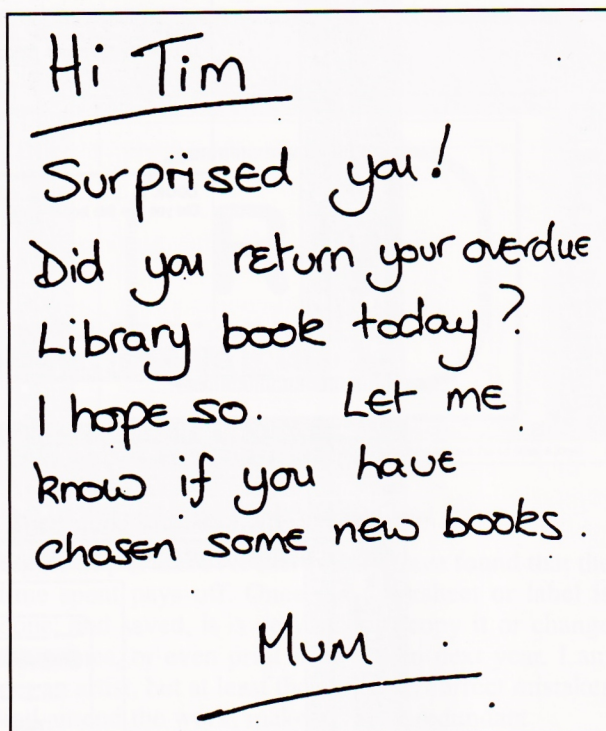 Hi Tim
Surprised you!
Did you return your overdue
Library book today?
I hope so. Let me
know if you have
chosen some new books.
Mum